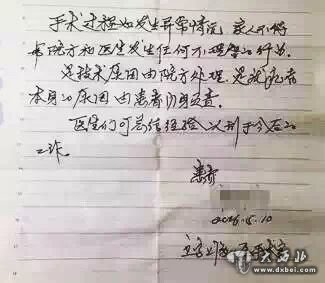 手术过程如发生异常情况 家人不得
与院方和医生发生任何不理智的行为.
是技术原因由院方处理. 是我患者
本身的原因由患者自身负责.
医生们可总结经验 以利于今后的
工作.
患者
2016.5.10
大西北
www.dxbei.com